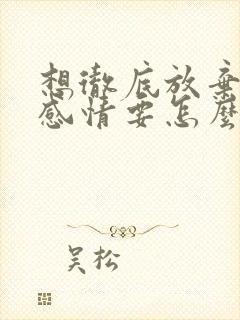 想徹底放棄
感情要怎麼
吴松